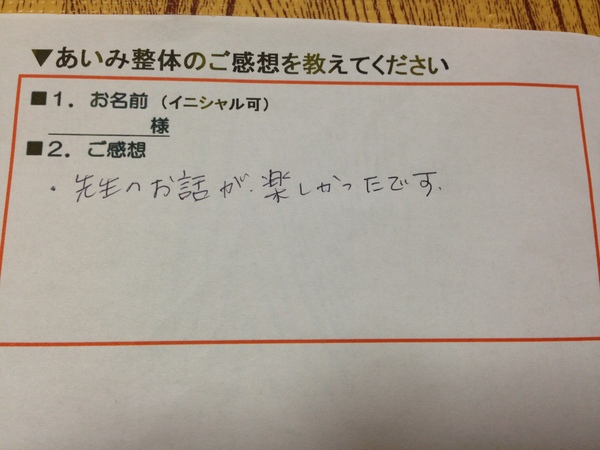 ▼あいみ整体のご感想を教えてください
■１．お名前（イニシャル可）
様
■２．ご感想
・先生のお話が、楽しかったです。